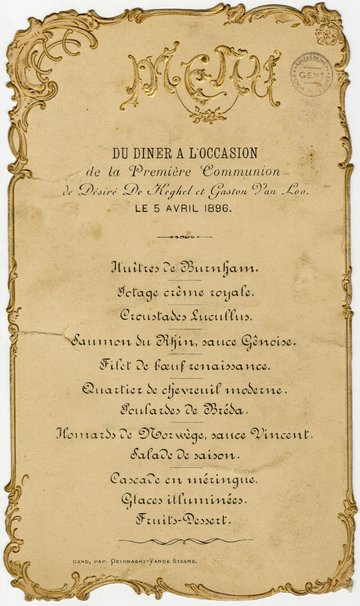 MENU
GENT
DU DINER A L'OCCASION
de la Première Communion
de Désiré De Keghel et Gaston Van Loo.
LE 5 AVRIL 1896.
Huîtres de Burnham.
Potage crême royale.
Croustades Lucullus.
Saumon du Rhin, sauce Gênoise.
Filet de bœuf renaissance.
Quartier de chevreuil moderne.
Poulardes de Bréda.
Homards de Norwège, sauce Vincent.
Salade de saison.
Cascade en méringue.
Glaces illuminées.
Fruits-Dessert.
GAND, PAP. GEIRNAERT-VANDE STEENE.